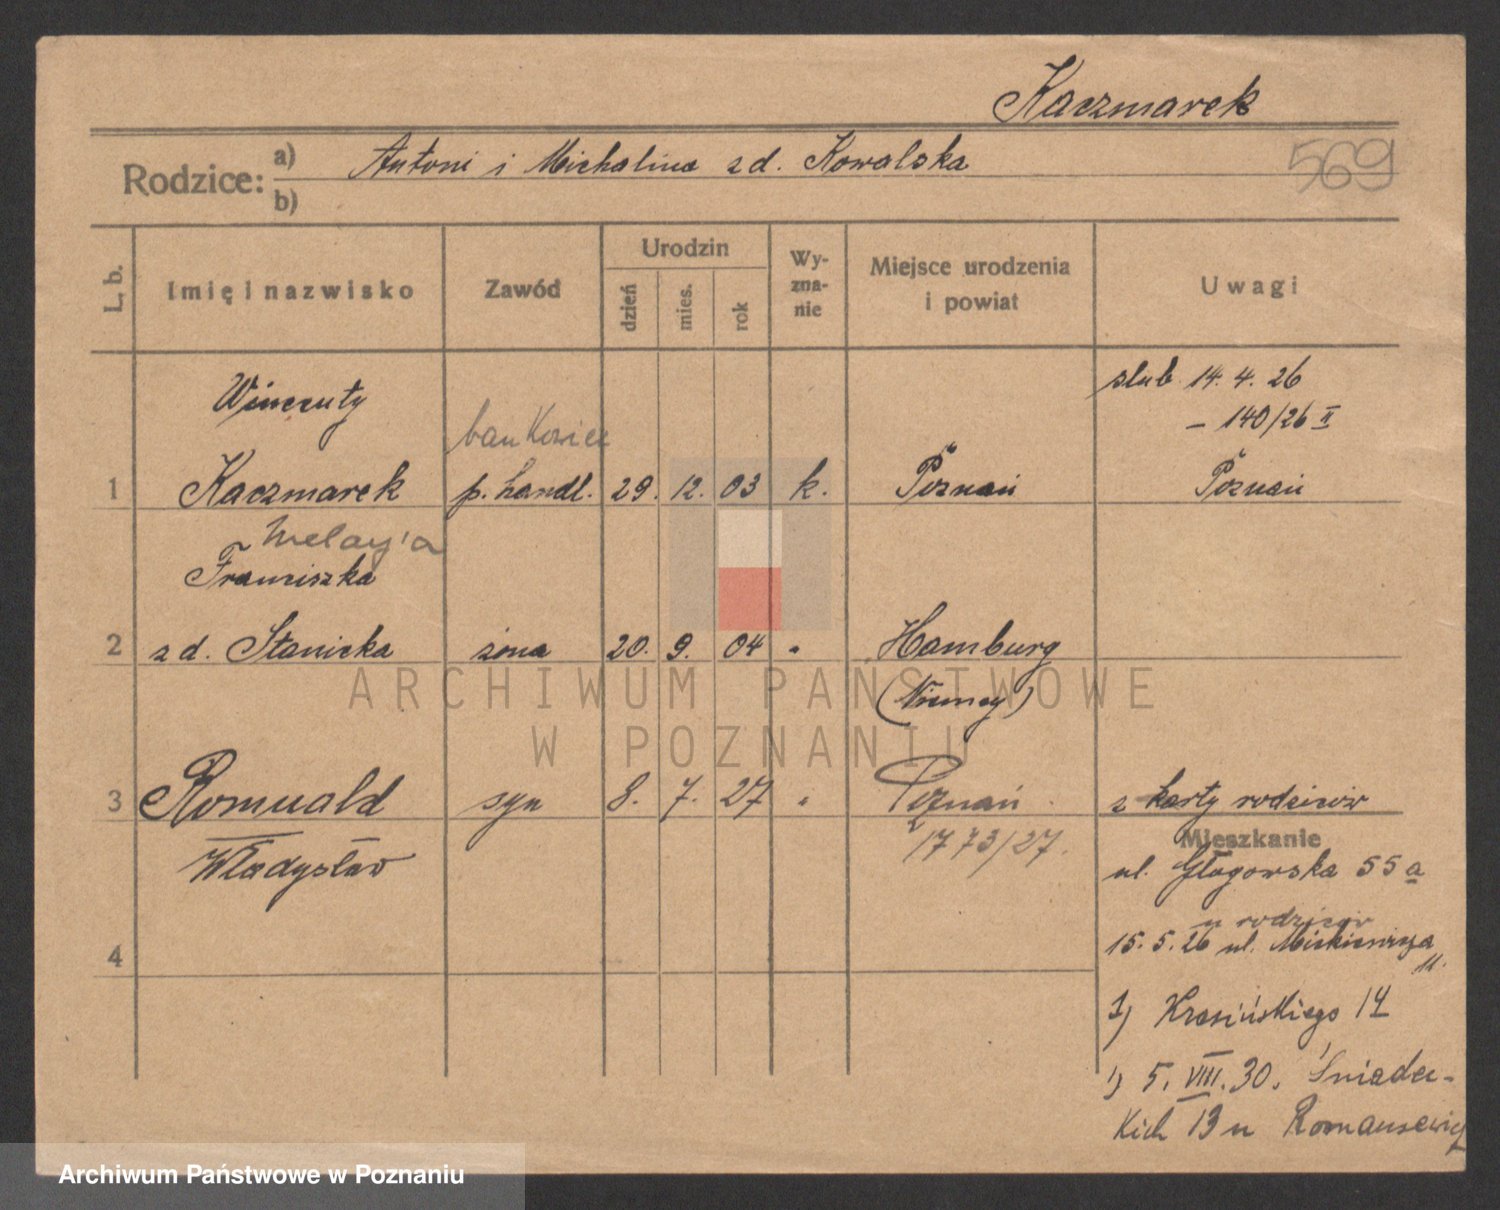 Kaczmarek
569
Rodzice: a) Antoni i Michalina zd. Kowalska
b)
L. b. Imię i nazwisko Zawód Urodzin dzień mies. rok Wy-zna-nie Miejsce urodzenia i powiat Uwagi
Wincenty ślub 14. 4. 26
bankowiec – 140/26 II
1 Kaczmarek p. handl. 29. 12. 03 k. Poznań Poznań
Pelagia
Franciszka
2 zd. Stanicka żona 20. 9. 04 " Hamburg
(Niemcy)
3 Romuald syn 8. 7. 27 " Poznań z karty rodziców
Władysław 1773/27.
Mieszkanie
ul. Głogowska 55a
u rodziców
15. 5. 26 ul. Mickiewicza
11.
4
1) Krasińskiego 14
1) 5. VIII. 30. Śniadec-
kich 13 u Romansewicz
ARCHIWUM PAŃSTWOWE
W POZNANIU
Archiwum Państwowe w Poznaniu